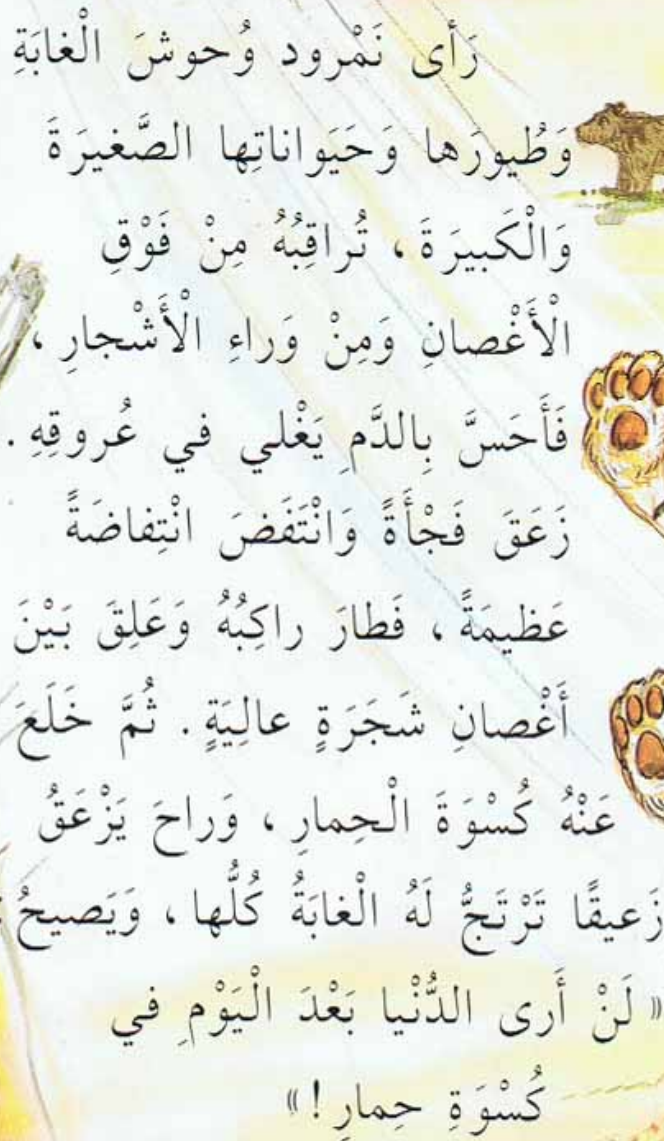 رَأى نَمْرود وُحوشَ الْغابَةِ
وَطُيورَها وَحَيَواناتِها الصَّغيرَةَ
وَالْكَبيرَةَ ، تُراقِبُهُ مِنْ فَوْقِ
الْأَغْصانِ وَمِنْ وَراءِ الْأَشْجارِ ،
فَأَحَسَّ بِالدَّمِ يَغْلي في عُروقِهِ .
زَعَقَ فَجْأَةً وَانْتَفَضَ انْتِفاضَةً
عَظيمَةً ، فَطارَ راكِبُهُ وَعَلِقَ بَيْنَ
أَغْصانِ شَجَرَةٍ عالِيَةٍ . ثُمَّ خَلَعَ
عَنْهُ كُسْوَةَ الْحِمارِ ، وَراحَ يَزْعَقُ
زَعيقًا تَرْتَجُّ لَهُ الْغابَةُ كُلُّها ، وَيَصيحُ :
« لَنْ أَرى الدُّنْيا بَعْدَ الْيَوْمِ في
كُسْوَةِ حِمارٍ ! »